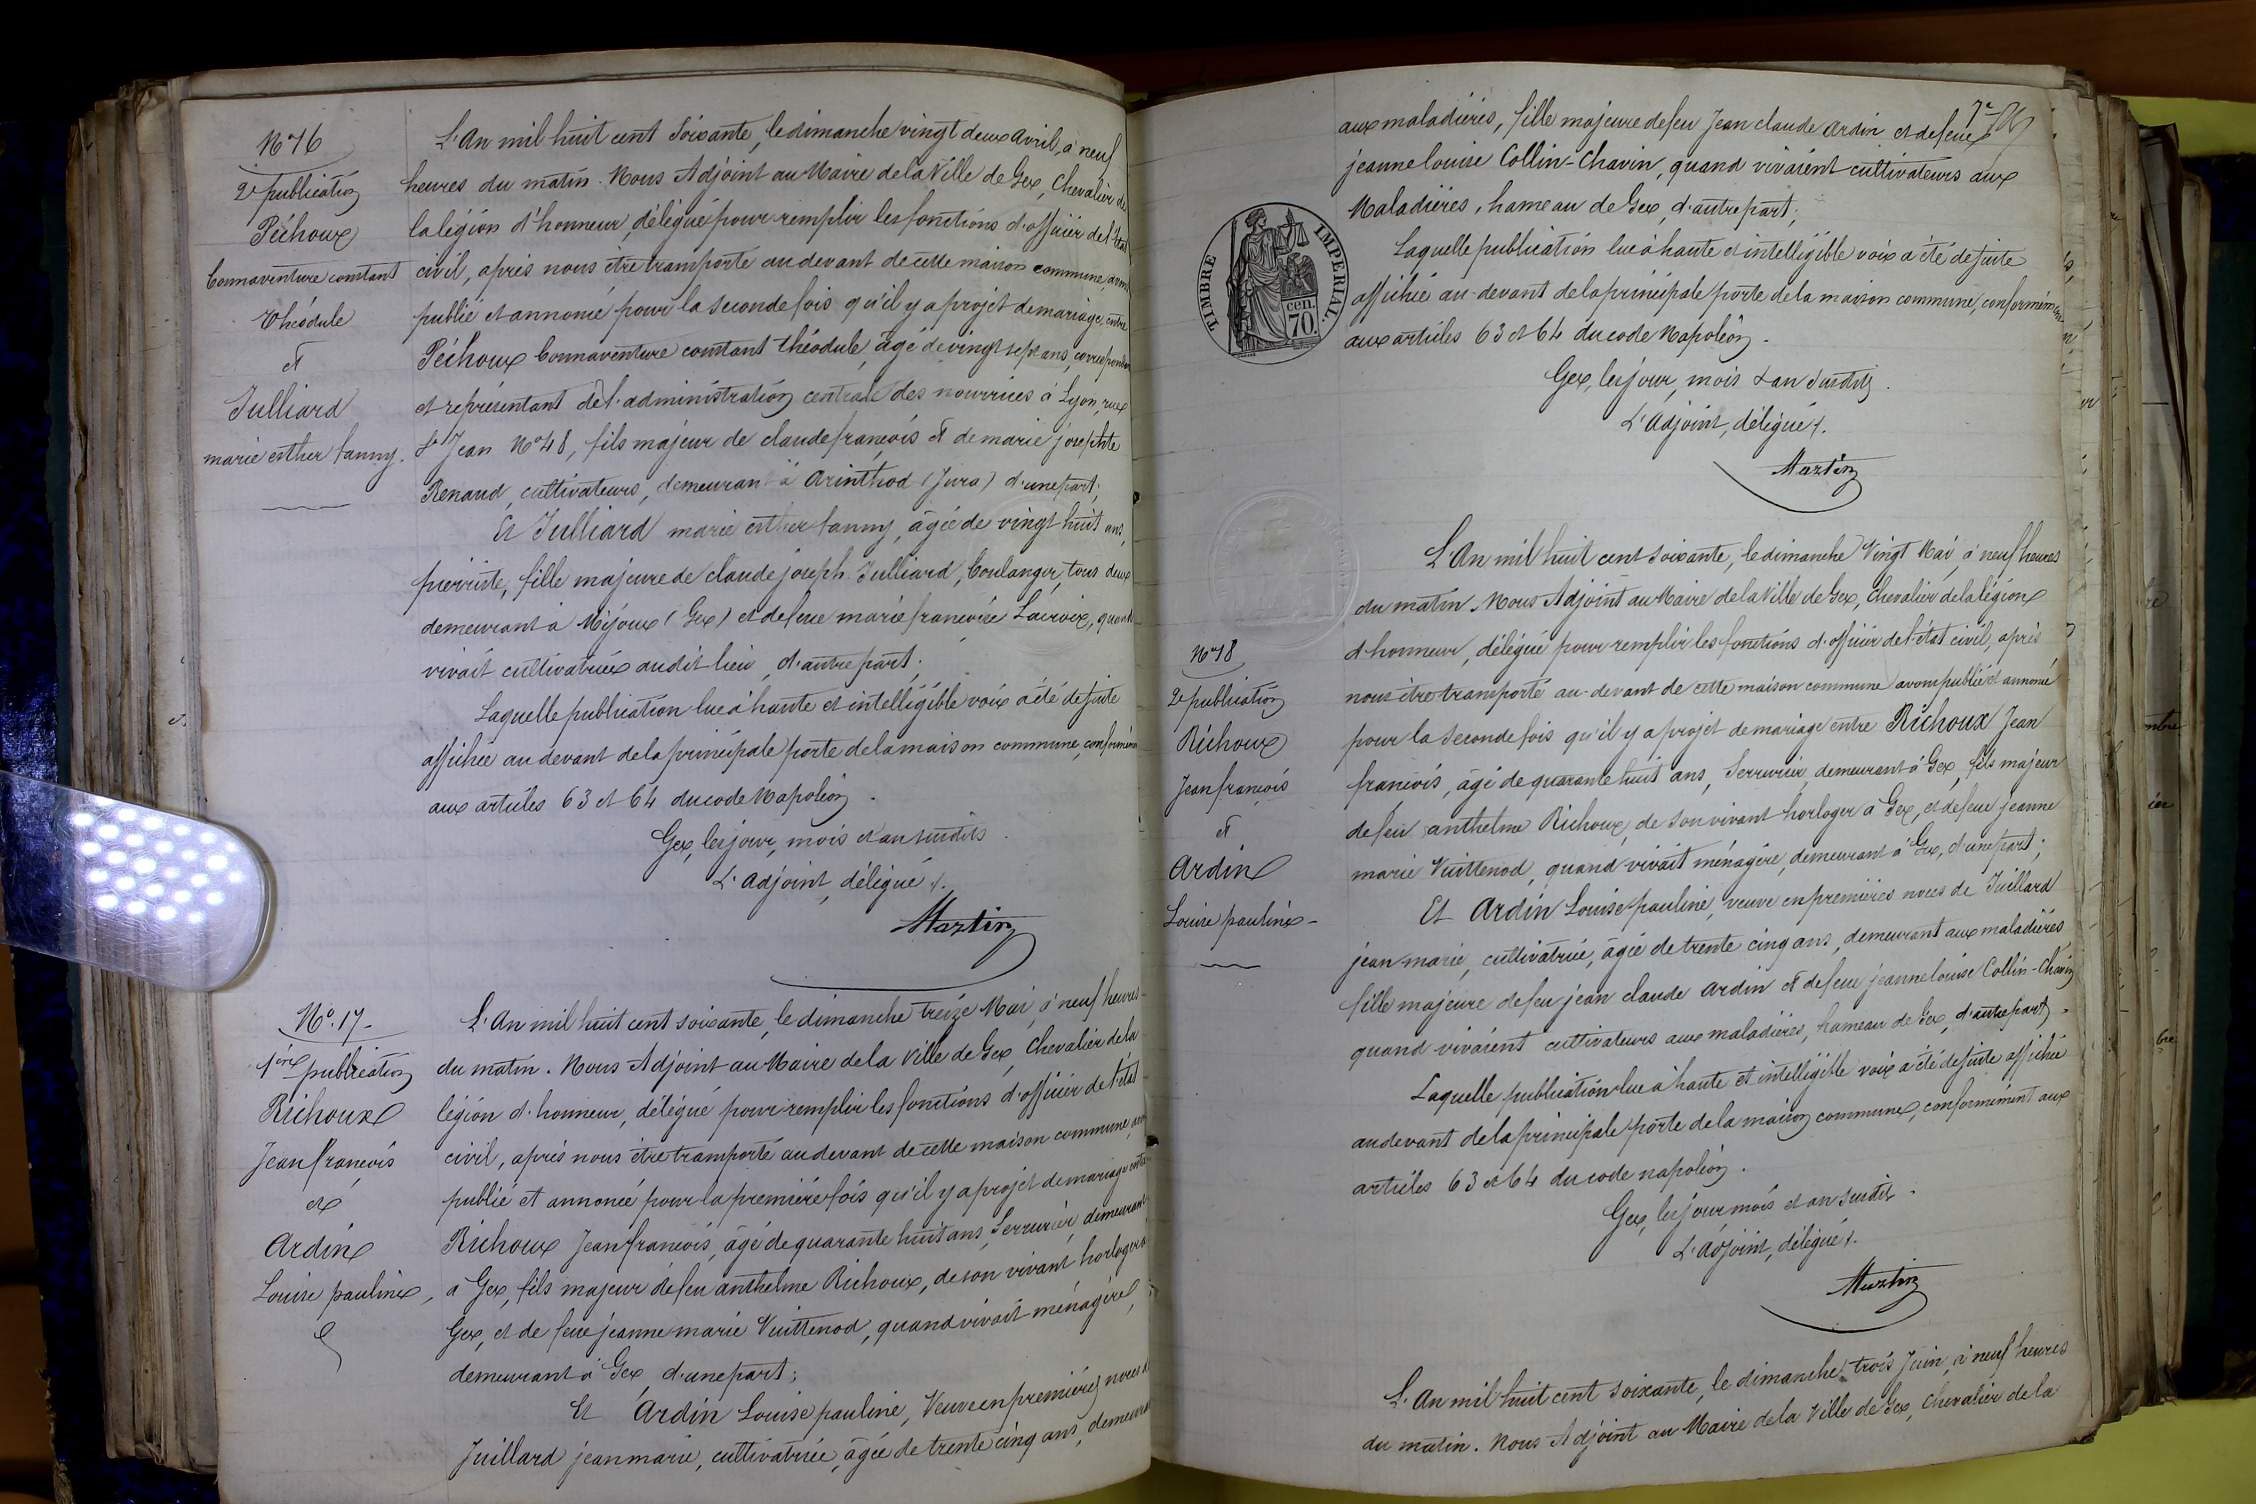 N° 16
2e publication
Péchoux
bonnaventure constant
théodule
et
Julliard
marie esther fanny.
L'An mil huit cent soixante, le dimanche vingt deux avril, à neuf
heures du matin. Nous Adjoint au Maire de la Ville de Gex, Chevalier de
la légion d'honneur, délégué pour remplir les fonctions d'officier de l'état
civil, après nous être transporté au devant de cette maison commune, avons
publié et annoncé pour la seconde fois qu'il y a projet de mariage entre
Péchoux bonnaventure constant théodule, âgé de vingt sept ans,
et représentant de l'administration centrale des nourrices à Lyon, rue
St Jean N° 48, fils majeur de claude françois et de marie josephte
Renaud, cultivateurs, demeurant à Arinthod (Jura) d'une part;
Et Julliard marie esther fanny, âgée de vingt huit ans,
pierriste, fille majeure de claude joseph Julliard, boulanger, tous deux
demeurant à Mijoux (Gex) et de feue marie françoise Lacroix, quand
vivait cultivatrice audit lieu, d'autre part;
Laquelle publication lue à haute et intelligible voix a été de suite
affichée au devant de la principale porte de la maison commune, conformément
aux articles 63 et 64 du code Napoléon.
Gex, les jour, mois et an susdits.
L'Adjoint, délégué.
Martin
N°. 17
1ère publication
Richoux
Jean françois
et
Ardin
Louise pauline,
L'An mil huit cent soixante, le dimanche treize Mai, à neuf heures
du matin. Nous Adjoint au Maire de la Ville de Gex, Chevalier de la
légion d'honneur, délégué pour remplir les fonctions d'officier de l'état
civil, après nous être transporté au devant de cette maison commune, avons
publié et annoncé pour la première fois qu'il y a projet de mariage entre
Richoux Jean françois, âgé de quarante huit ans, Serrurier, demeurant
à Gex, fils majeur de feu anthelme Richoux, de son vivant horloger à
Gex, et de feue jeanne marie Vuittenod, quand vivait ménagère,
demeurant à Gex, d'une part;
Et Ardin Louise pauline, Veuve en premières noces de
Juillard jean marie, cultivatrice, âgée de trente cinq ans, demeurant
aux maladières, fille majeure de feu Jean claude Ardin et de feue
jeanne louise Collin-Chavin, quand vivaient cultivateurs aux
Maladières, hameau de Gex, d'autre part;
Laquelle publication lue à haute et intelligible voix a été de suite
affichée au-devant de la principale porte de la maison commune, conformément
aux articles 63 et 64 du code Napoléon.
Gex, les jour, mois & an susdits.
L'Adjoint, délégué.
Martin
TIMBRE IMPERIAL.
cen.
70.
N° 18
2e publication
Richoux
Jean françois
et
Ardin
Louise pauline
L'An mil huit cent soixante, le dimanche Vingt Mai, à neuf heures
du matin. Nous Adjoint au Maire de la Ville de Gex, Chevalier de la légion
d'honneur, délégué pour remplir les fonctions d'officier de l'état civil, après
nous être transporté au-devant de cette maison commune avons publié et annoncé
pour la seconde fois qu'il y a projet de mariage entre Richoux Jean
françois, âgé de quarante huit ans, Serrurier, demeurant à Gex, fils majeur
de feu anthelme Richoux, de son vivant horloger à Gex, et de feue jeanne
marie Vuittenod, quand vivait ménagère, demeurant à Gex, d'une part;
Et Ardin Louise pauline, veuve en premières noces de Juillard
jean marie, cultivatrice, âgée de trente cinq ans, demeurant aux maladières,
fille majeure de feu jean claude Ardin et de feue jeanne louise Collin-Chavin
quand vivaient cultivateurs aux maladières, hameau de Gex, d'autre part.
Laquelle publication lue à haute et intelligible voix a été de suite affichée
au devant de la principale porte de la maison commune, conformément aux
articles 63 et 64 du code napoléon.
Gex, les jour mois et an susdits.
L'Adjoint, délégué.
Martin
L'An mil huit cent soixante, le dimanche trois Juin, à neuf heures
du matin. Nous Adjoint au Maire de la Ville de Gex, Chevalier de la